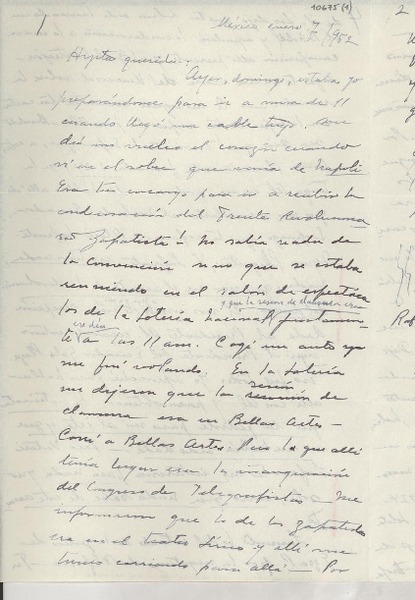 10675 (1)
1
Mexico enero 7/1952
querida.
Ayer, domingo, estaba yo
preparándome para ir a misa de 11
cuando llegó un cable tuyo. Me
dió un vuelco el corazón cuando
ví en el sobre que venía de Napoli
Era tu encargo para ir a recibir la
condecoración del Frente Revoluciona
rio Zapatista! No sabía nada de
la Convención sino que se estaba
reuniendo en el salón de espectácu
y que la sesión de clausura era
los de la Lotería Nacional justamen-
ese día
te a las 11 am. Cogí un auto y
me fuí volando. En la Lotería
sesión
me dijeron que la reunión de
clausura era en Bellas Artes—
Corrí a Bellas Artes. Pero lo que allí
tenía lugar era la inauguración
del Congreso de Telegrafistas— Me
informaron que lo de los zapatistas
era en el teatro Lírico y allí me
tienes corriendo para allá— Por
2